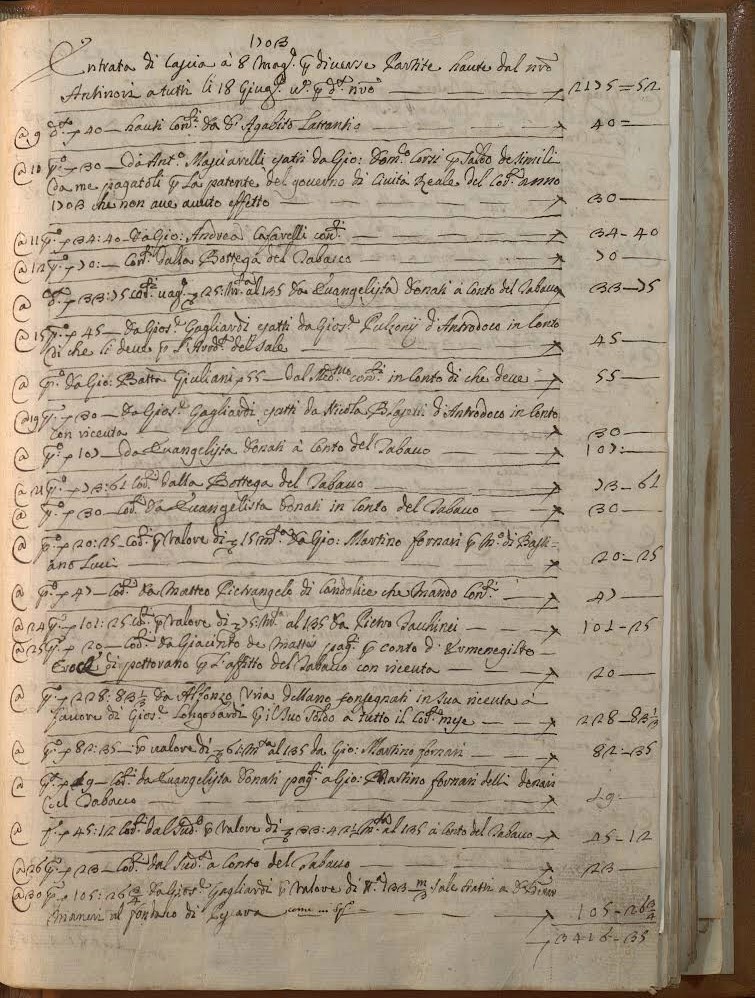 1703
Entrata di Cascia à 8 Magg.º p diverse Partite haute dal nrõ
Antinori a tutti li 18 Giug.º p d.º nrõ — 2175=52
@ 9 d.º p 40 — hauti Con.ti da S.r Agabito Lattantio — 40=
@ 10 p.º p 30 — da Ant.º Masciarelli esatti da Gio: Dom.º Corsi p saldo de simili
da me pagatoli p la patente del governo di Civita Reale del Cod.º anno
1703 che non ave avuto effetto — 30 —
@ 11 p.º p 34:40 — da Gio: Andrea Casarelli con.ti — 34-40
@ 12 p.º p 70: — Con.ti dalla Bottega del Tabacco — 70 —
@ d.º p 33:75 al 135 da Evangelista Donati à Conto del Tabacco — 33-75
@ 15 p.º p 45 — da Gios.e Gagliardi esatti da Gios.e d'Antrodoco in Conto
di che li deve p del sale — 45 —
@ p.º da Gio: Batta Giuliani p 55 — dal con.ti in Conto di che deve — 55 —
@ 19 p.º p 30 — da Gios.e Gagliardi esatti da Nicola d'Antrodoco in Conto
con riceuta — 30
@ p.º p 107 — da Evangelista Donati à Conto del Tabacco — 107:—
@ 21 p.º p 73:61 Con.ti dalla Bottega del Tabacco — 73-61
@ p.º p 30 — Con.ti da Evangelista Donati in Conto del Tabacco — 30 —
@ p.º p 20:25 Con.ti p valore di 15 da Gio: Martino fornari p m.º di Basti=
ano Luci — 20:-25
@ p.º p 47 — Con.ti da Matteo Pietrangelo di Condolice che mandò Con.ti — 47 —
@ 24 p.º p 101:25 Con.ti p valore di 75 al 135 da Pietro Jacchinei — 101-25
@ 25 p.º p 20 — Con.ti da Giacinto de Mattis pag.ti p conto d'Ermenegilto
di pettorano p l'affitto del Tabacco con riceuta — 20 —
@ p.º p 228:83⅓ da Alfonzo dellano consegnati in sua riceuta à
favore di Gios.e Longobardi p il suo soldo à tutto il Cod.º mese — 228-83⅓
@ p.º p 82:35 — p valore di 61 al 135 da Gio: Martino fornari — 82-35
@ p.º p 19 — Con.ti da Evangelista Donati pag.ti a Gio: Martino fornari delli denari
del Tabacco — 19 —
@ p.º p 45:12 Con.ti dal Sud.º p valore di 33:42½ al 135 à Conto del Tabacco — 45-12
@ 26 p.º p 23 — Con.ti dal Sud.º à Conto del Tabacco — 23 —
@ 30 p.º p 105:26¾ da Gios.e Gagliardi p valore di N.º 133 sale
al fondaco di Pescara — 105-26¾
3416-35